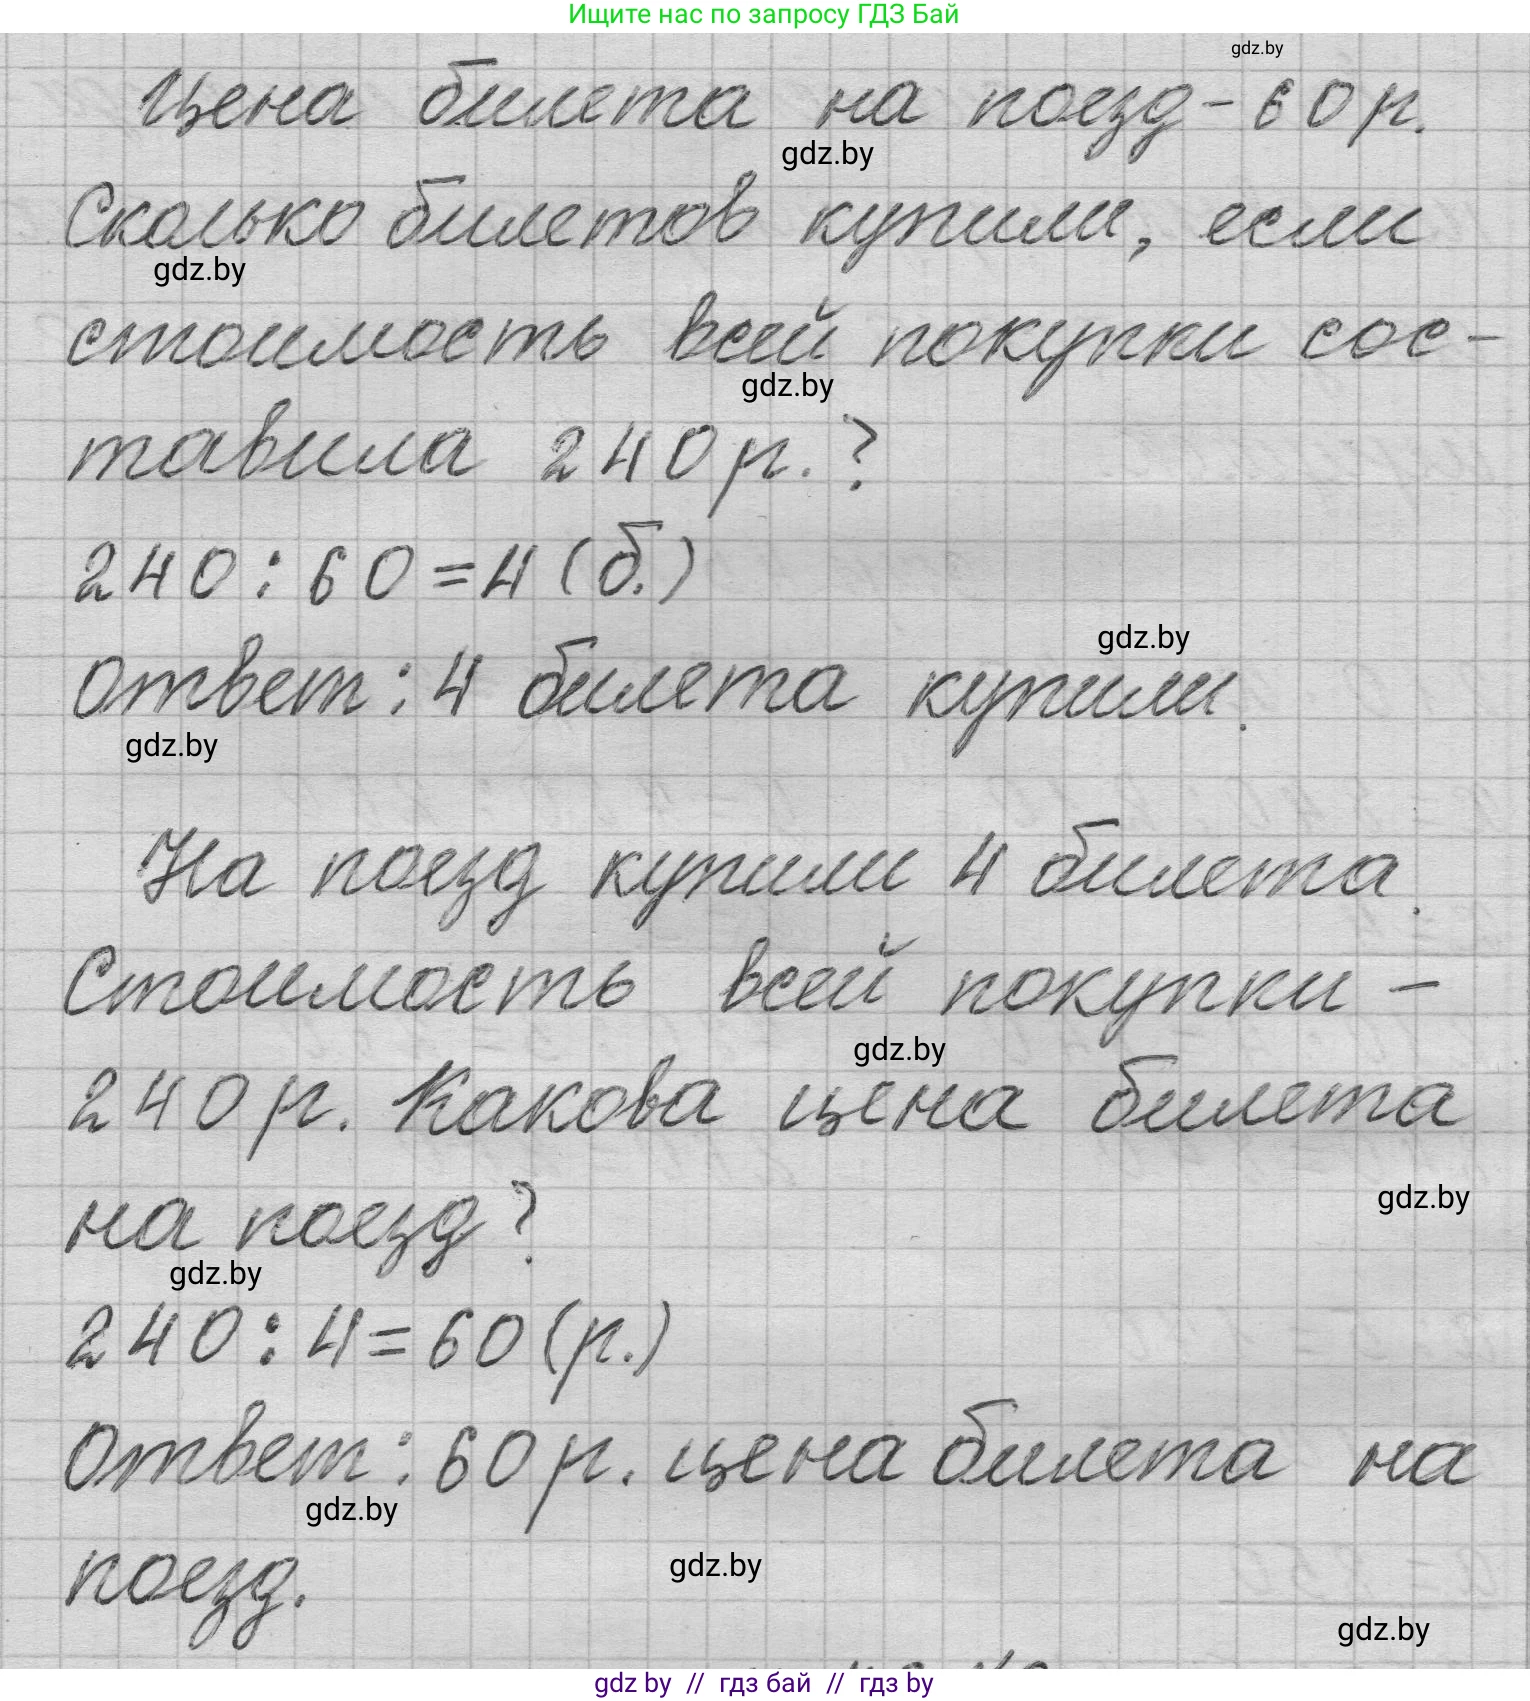 Ищите нас по запросу ГДЗ Бай
gdz.by
Цена билета на поезд - 60 р.
gdz.by
Сколько билетов купили, если
gdz.by
стоимость всей покупки сос-
gdz.by
тавила 240 р.?
240 : 60 = 4 (б.)
gdz.by
Ответ: 4 билета купили.
gdz.by
На поезд купили 4 билета.
Стоимость всей покупки -
gdz.by
240 р. Какова цена билета
gdz.by
на поезд?
gdz.by
240 : 4 = 60 (р.)
Ответ: 60 р. цена билета на
gdz.by
поезд.
gdz.by
gdz.by
gdz by // гдз бай // гдз by